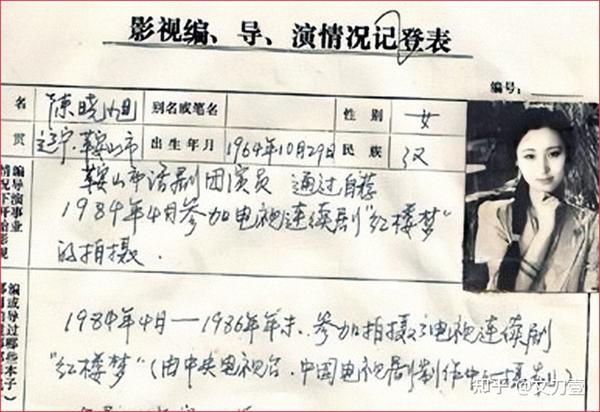 影视编、导、演情况记登表
编号:
名 陈晓旭 别名或笔名 性别 女
贯 辽宁.鞍山市 出生年月 1964年10月29日 民族 汉
编导演事业
情况下开始影视
鞍山市话剧团演员 通过自荐
1984年4月参加电视连续剧"红楼梦"
的拍摄.
编或导过哪些
本子
1984年4月—1986年年末.参加拍摄了电视连续剧
"红楼梦"(由中央电视台.中国电视剧制作中心摄制)
知乎 @艾力壹